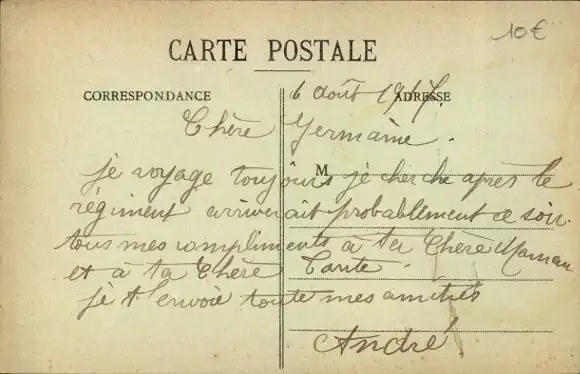 10€
CARTE POSTALE
CORRESPONDANCE
ADRESSE
6 août 1917.
Chère Germaine.
M
je voyage toujours je cherche après le
régiment arriverait probablement ce soir.
tous mes compliments à ta Chère Maman
et à ta Chère Tante.
je t'envoie toute mes amitiés
André